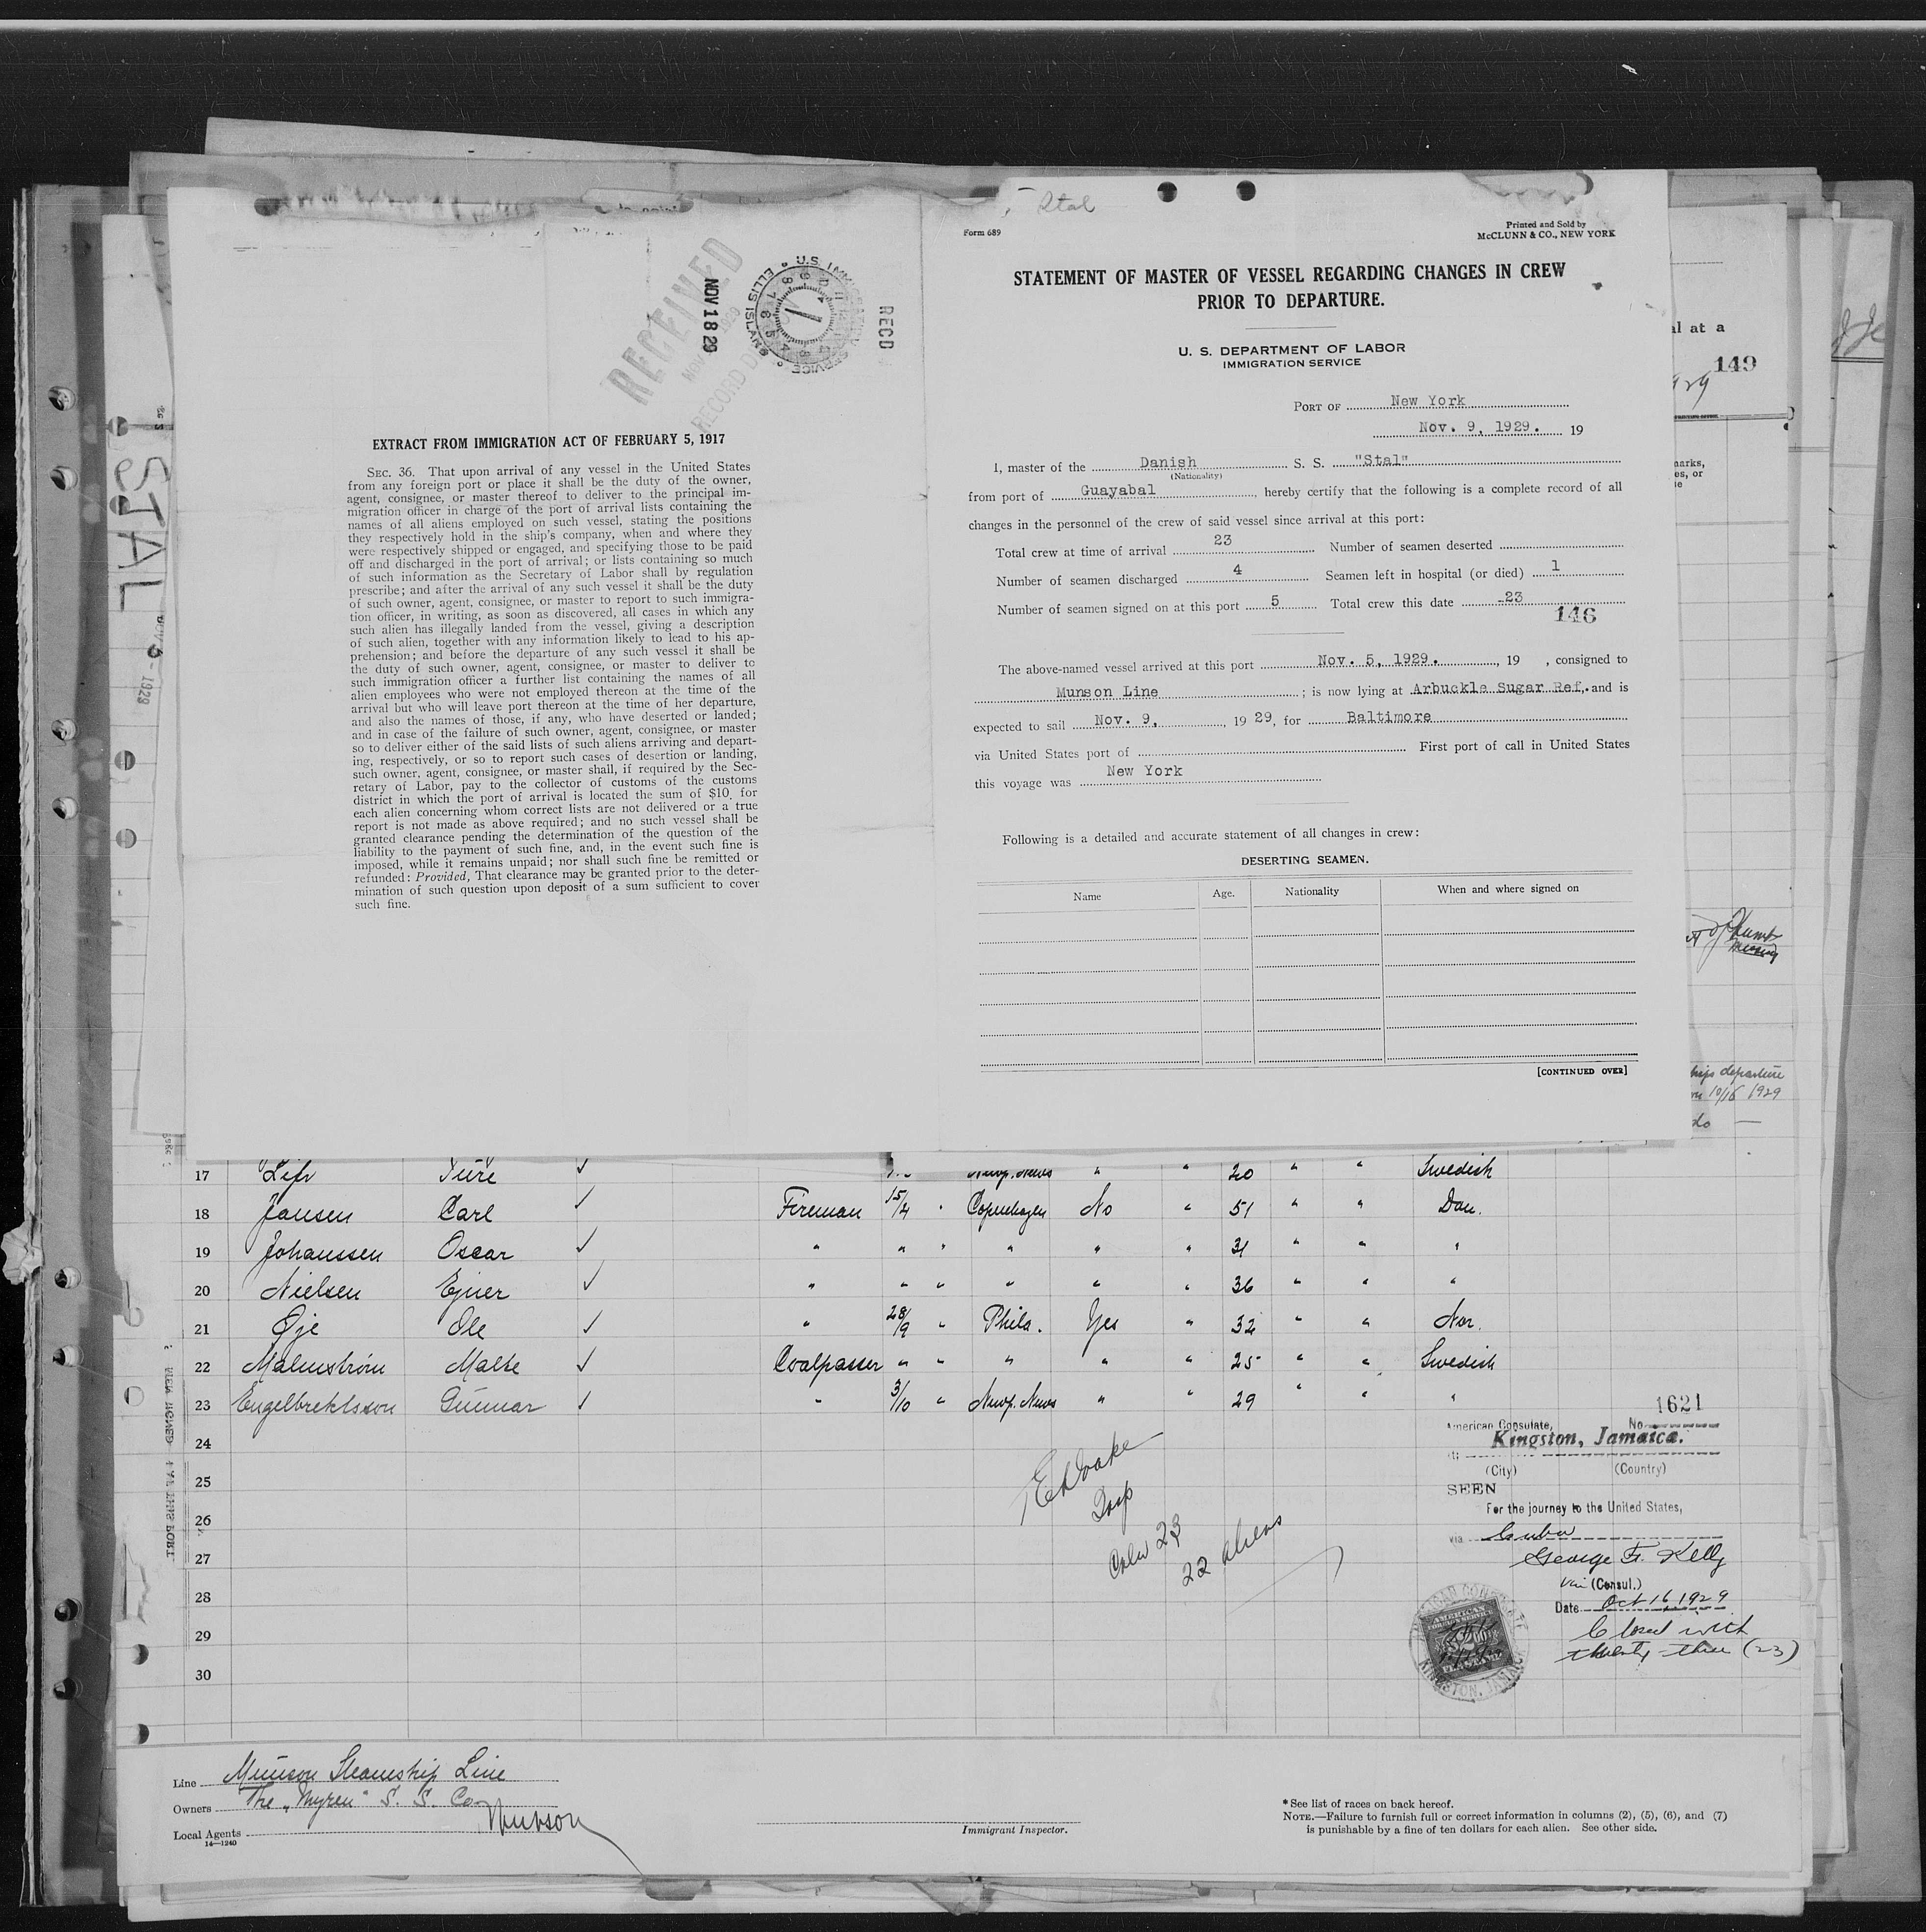 RECEIVED
NOV 18 29
RECORD
U.S. IMMIGRATION SERVICE
ELLIS ISLAND
RECD
EXTRACT FROM IMMIGRATION ACT OF FEBRUARY 5, 1917
SEC. 36. That upon arrival of any vessel in the United States
from any foreign port or place it shall be the duty of the owner,
agent, consignee, or master thereof to deliver to the principal im-
migration officer in charge of the port of arrival lists containing the
names of all aliens employed on such vessel, stating the positions
they respectively hold in the ship's company, when and where they
were respectively shipped or engaged, and specifying those to be paid
off and discharged in the port of arrival; or lists containing so much
of such information as the Secretary of Labor shall by regulation
prescribe; and after the arrival of any such vessel it shall be the duty
of such owner, agent, consignee, or master to report to such immigra-
tion officer, in writing, as soon as discovered, all cases in which any
such alien has illegally landed from the vessel, giving a description
of such alien, together with any information likely to lead to his ap-
prehension; and before the departure of any such vessel it shall be
the duty of such owner, agent, consignee, or master to deliver to
such immigration officer a further list containing the names of all
alien employees who were not employed thereon at the time of the
arrival but who will leave port thereon at the time of her departure,
and also the names of those, if any, who have deserted or landed;
and in case of the failure of such owner, agent, consignee, or master
so to deliver either of the said lists of such aliens arriving and depart-
ing, respectively, or so to report such cases of desertion or landing,
such owner, agent, consignee, or master shall, if required by the Sec-
retary of Labor, pay to the collector of customs of the customs
district in which the port of arrival is located the sum of $10 for
each alien concerning whom correct lists are not delivered or a true
report is not made as above required; and no such vessel shall be
granted clearance pending the determination of the question of the
liability to the payment of such fine, and, in the event such fine is
imposed, while it remains unpaid; nor shall such fine be remitted or
refunded: Provided, That clearance may be granted prior to the deter-
mination of such question upon deposit of a sum sufficient to cover
such fine.
Stal
Form 689
Printed and Sold by
McCLUNN & CO., NEW YORK
STATEMENT OF MASTER OF VESSEL REGARDING CHANGES IN CREW
PRIOR TO DEPARTURE.
U. S. DEPARTMENT OF LABOR
IMMIGRATION SERVICE
PORT OF New York
Nov. 9, 1929. 19
I, master of the Danish S. S. "Stal"
(Nationality)
from port of Guayabal, hereby certify that the following is a complete record of all
changes in the personnel of the crew of said vessel since arrival at this port:
Total crew at time of arrival 23 Number of seamen deserted
Number of seamen discharged 4 Seamen left in hospital (or died) 1
Number of seamen signed on at this port 5 Total crew this date 23
146
The above-named vessel arrived at this port Nov. 5, 1929., 19 , consigned to
Munson Line ; is now lying at Arbuckle Sugar Ref. and is
expected to sail Nov. 9, 1929, for Baltimore
via United States port of First port of call in United States
this voyage was New York
Following is a detailed and accurate statement of all changes in crew:
DESERTING SEAMEN.
Name Age. Nationality When and where signed on
[CONTINUED OVER]
al at a
149
STAL
1929
ships departure
10/16 1929
do
17 Ture ✓ Newp. News " " 20 " " Swedish
18 Jansen Carl ✓ Fireman 15/4 " Copenhagen No " 51 " " Dan.
19 Johanssen Oscar ✓ " " " " " " 31 " " "
20 Nielsen Ejner ✓ " " " " " " 36 " " "
21 Øje Ole ✓ " 28/9 " Phila. Yes " 32 " " Nor.
22 Malmstrøm Malte ✓ Coalpasser " " " " " 25 " " Swedish
23 Engelbrektsson Gunnar ✓ " 3/10 " Newp. News " " 29 " " "
24
25
26
27
28
29
30
Insp
Crew 23
22 aliens
1621
American Consulate, No.
Kingston, Jamaica.
(City) (Country)
SEEN
For the journey to the United States,
via Cuba
George F. Kelly
Vice (Consul.)
Date Oct 16, 1929
Closed with
twenty-three (23)
AMERICAN CONSULATE
KINGSTON, JAMAICA
Line Munson Steamship Line
Owners The "Myren" S. S. Co.
Local Agents Munson
14—1240
Immigrant Inspector.
* See list of races on back hereof.
NOTE.—Failure to furnish full or correct information in columns (2), (5), (6), and (7)
is punishable by a fine of ten dollars for each alien. See other side.